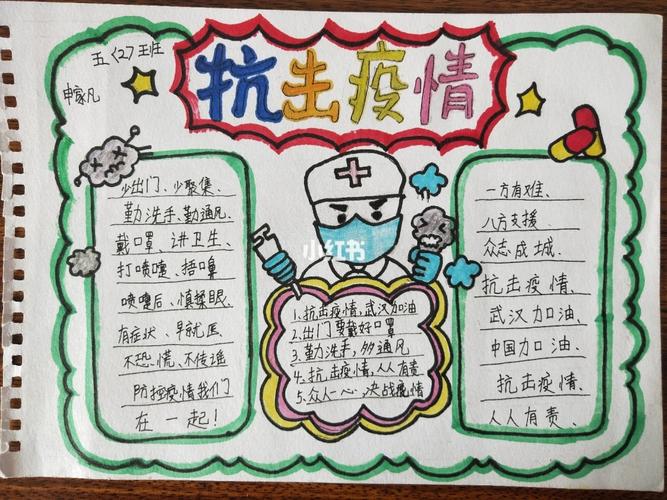 五〈2〉班
申家凡
抗击疫情
少出门、少聚集、
勤洗手、勤通风、
戴口罩、讲卫生、
打喷嚏、捂嘴鼻
喷嚏后、慎揉眼、
有症状、早就医
不恐慌、不传谣
防控疫情我们
在一起！
小红书
1、抗击疫情，武汉加油
2、出门要戴好口罩
3、勤洗手，多通风
4、抗击疫情，人人有责
5、众人一心，决战疫情
一方有难、
八方支援、
众志成城、
抗击疫情、
武汉加油、
中国加油、
抗击疫情、
人人有责、